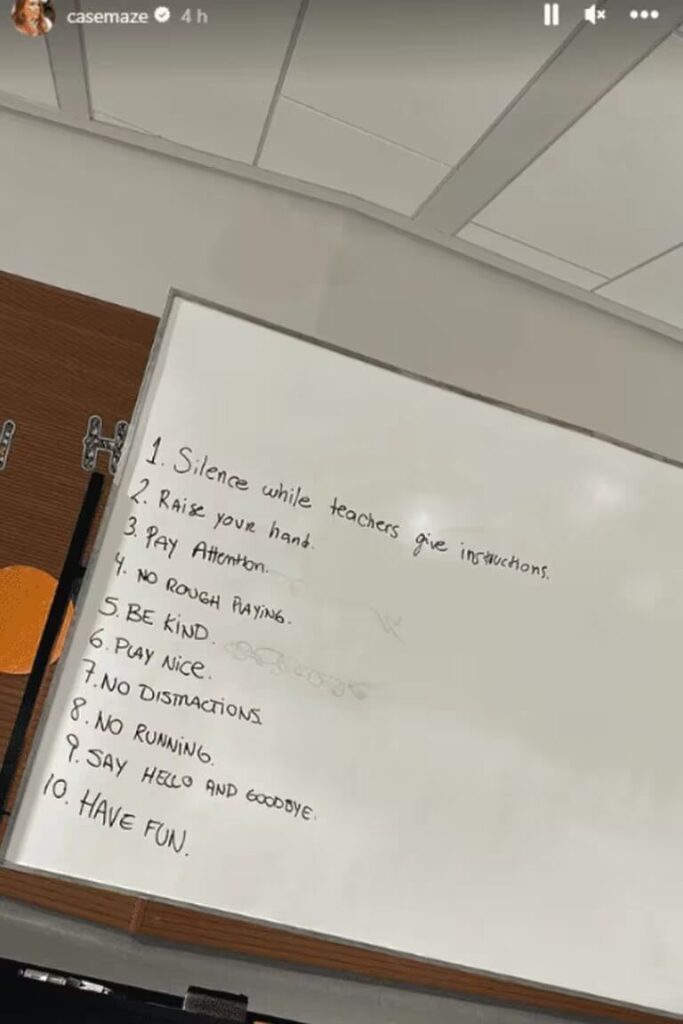 casemaze 4 h
1. Silence while teachers give instructions.
2. Raise your hand.
3. PAY Attention.
4. NO ROUGH PLAYING.
5. BE KIND.
6. PLAY NICE.
7. NO DISTRACTIONS.
8. NO RUNNING.
9. SAY HELLO AND GOODBYE.
10. HAVE FUN.